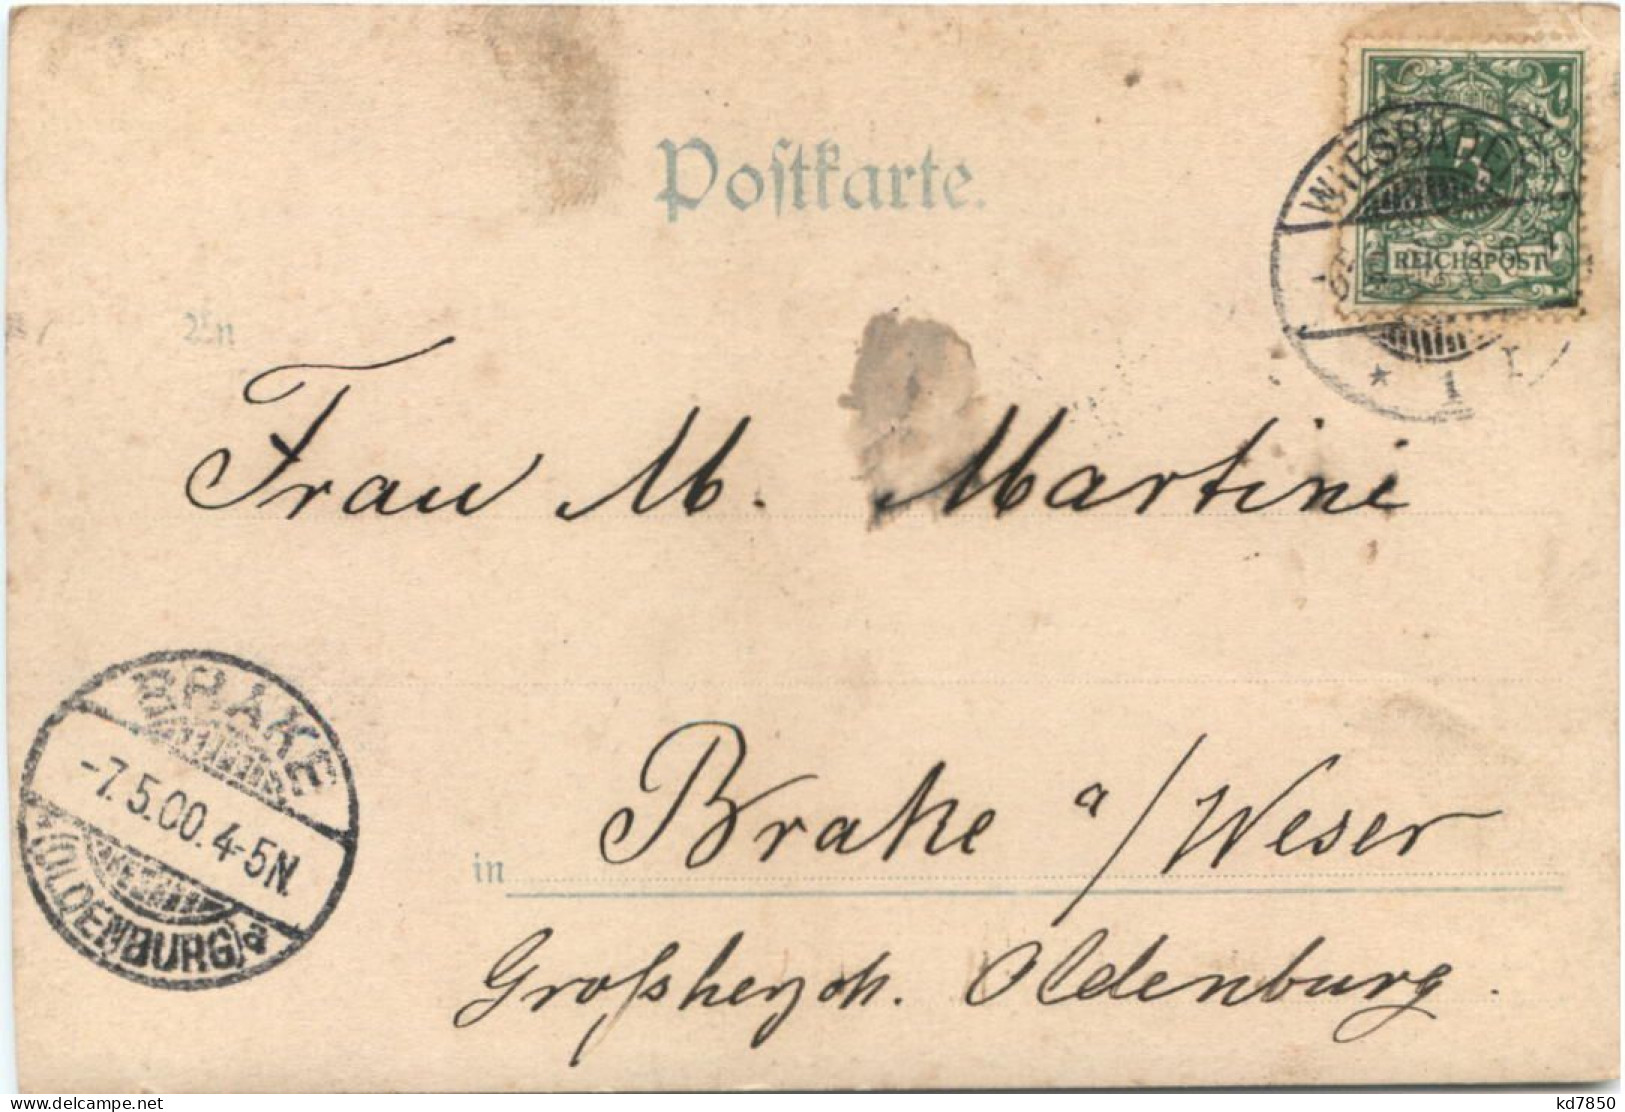 Postkarte.
WIESBADEN
REICHSPOST
* 1
An
Frau M. Martini
BRAKE
-7.5.00.4-5N.
(OLDENBURG) a
in Brake a/Weser
Großherzoh. Oldenburg.
delcampe.net
kd7850